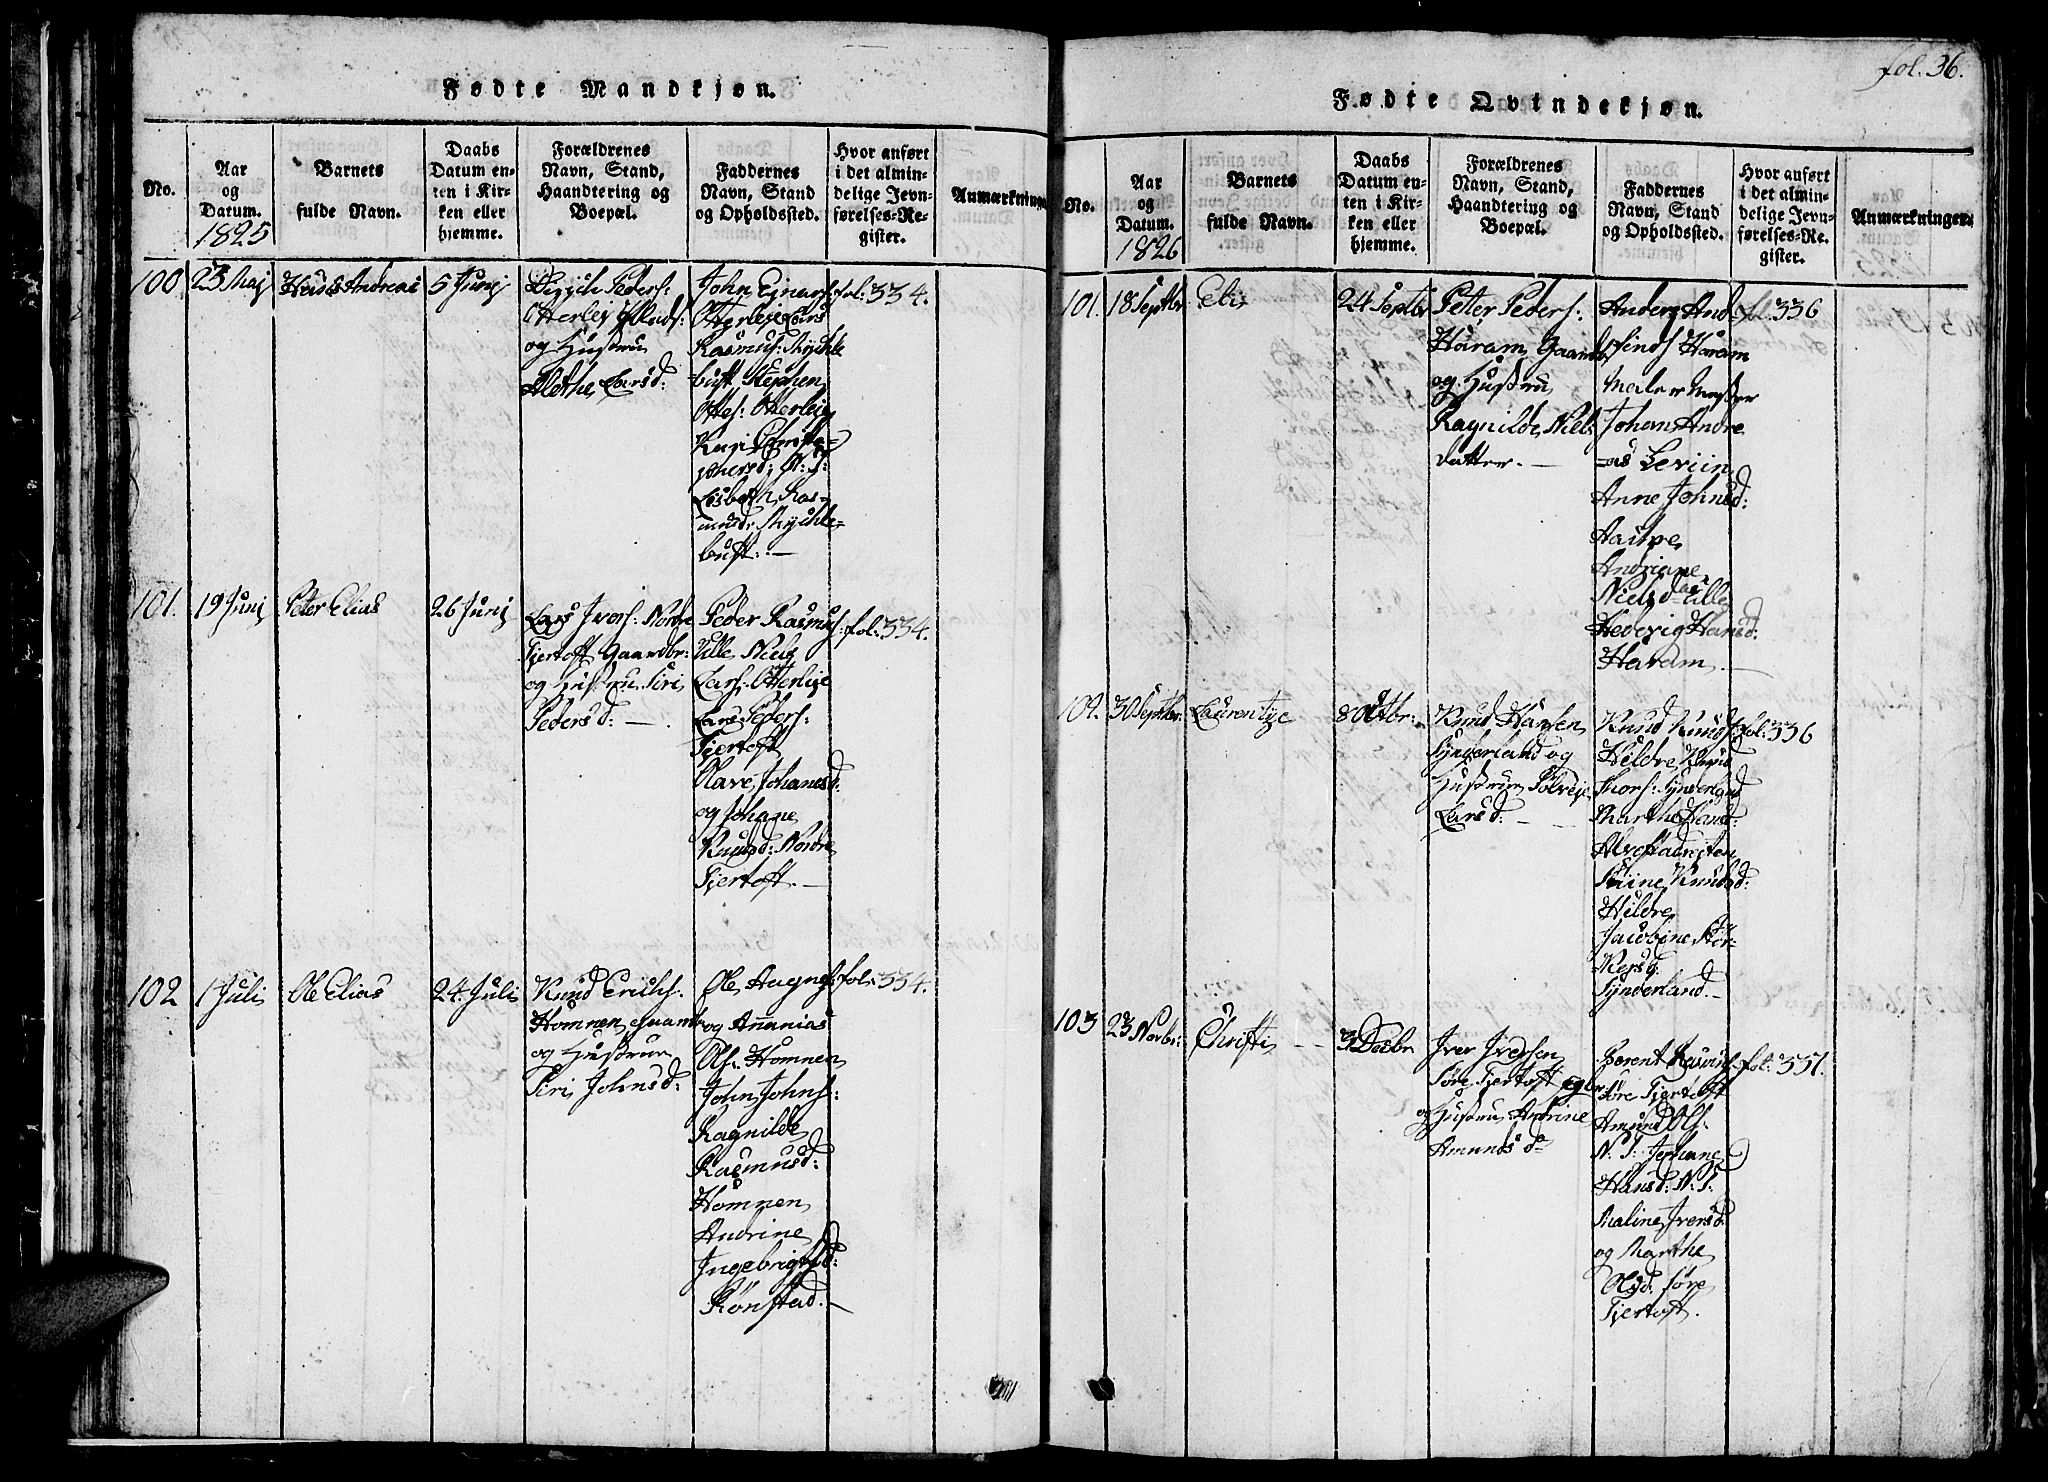 fol. 36.
Fødte Mandkjøn.
No.
Aar
og
Datum.
1825
Barnets
fulde Navn.
Daabs
Datum en-
ten i Kir-
ken eller
hjemme.
Forældrenes
Navn, Stand,
Haandtering og
Boepæl.
Faddernes
Navn, Stand
og Opholdssted.
Hvor anført
i det almin-
delige Jevn-
førelses-Re-
gister.
Anmærkninge
100
23 Maj
Andreas
5 Junij
Peders:
Otterlej
og Hustru
Larsd:
John
Otterleje Lars
Rasmus: Mychle
bust Stephen
Ottes: Otterleig
Kari Christo-
phersd:
Lisbeth Ras-
musd: Mychle-
bust. —
fol: 334.
101.
19 Junj
Peter Elias
26 Junij
Lars Ivers: Nordre
Fjertoft Gaardbr:
og Hustru Siri
Pedersd: —
Peder Rasmus:
Ulle Niels
Lars: Otterleje
Lars Peders:
Fjertoft
Olave Johanesd:
og Johane
Knudsd: Nordre
Fjertoft. —
fol: 334.
102
1 Juli
Ole Elias
24. Juli
Knud Erichs.
Homnen Gaardbr
og Hustrue
Siri Johnsd:
Ole
og Ananias
Ols: Homnen
John Johns:
Ragnilde
Rasmusd:
Homnen
Andrine
Ingebrigtsd:
Rønstad. —
fol: 334.
Fødte Qvindekjøn.
No.
Aar
og
Datum.
1826
Barnets
fulde Navn.
Daabs
Datum en-
ten i Kir-
ken eller
hjemme.
Forældrenes
Navn, Stand,
Haandtering og
Boepæl.
Faddernes
Navn, Stand
og Opholdssted.
Hvor anført
i det almin-
delige Jevn-
førelses-Re-
gister.
Anmærkninger.
101.
18 Septbr
Eli
24 Septbr
Peter Peders:
Haram Gaardb
og Hustru
Ragnilde Niels
datter. —
Anders And
Haram
Maler Mester
Johan Andre
-as Leviin
Anne Johnsd:
Andriane
Nielsd: Ulle
Hedevig Hansd:
Haram. —
fol: 336
102.
30 Septbr.
Laurentze
8 Octbr:
Knud Hansen
Synderland og
Hustrue Solveje
Larsd: —
Knud Knuds
Hildre Knud
Thors: Synderland
Marthe Hansd:
Alvestadrejten
Stine Knudsd:
Hildre
Jacobine Stor-
Kersd:
Synderland. —
fol: 336
103
23 Novbr:
Christi
3 Decbr
Iver Iversen
Søre Fjertoft
og Hustru Andrine
Amunds d:
Berent Rasmus
Søre Fjertoft
Amund Ols.
N. F: Johane
Hansd: N. F:
Maline Iversd:
og Marthe
Olsd. Søre
Fjertoft.
fol: 337.